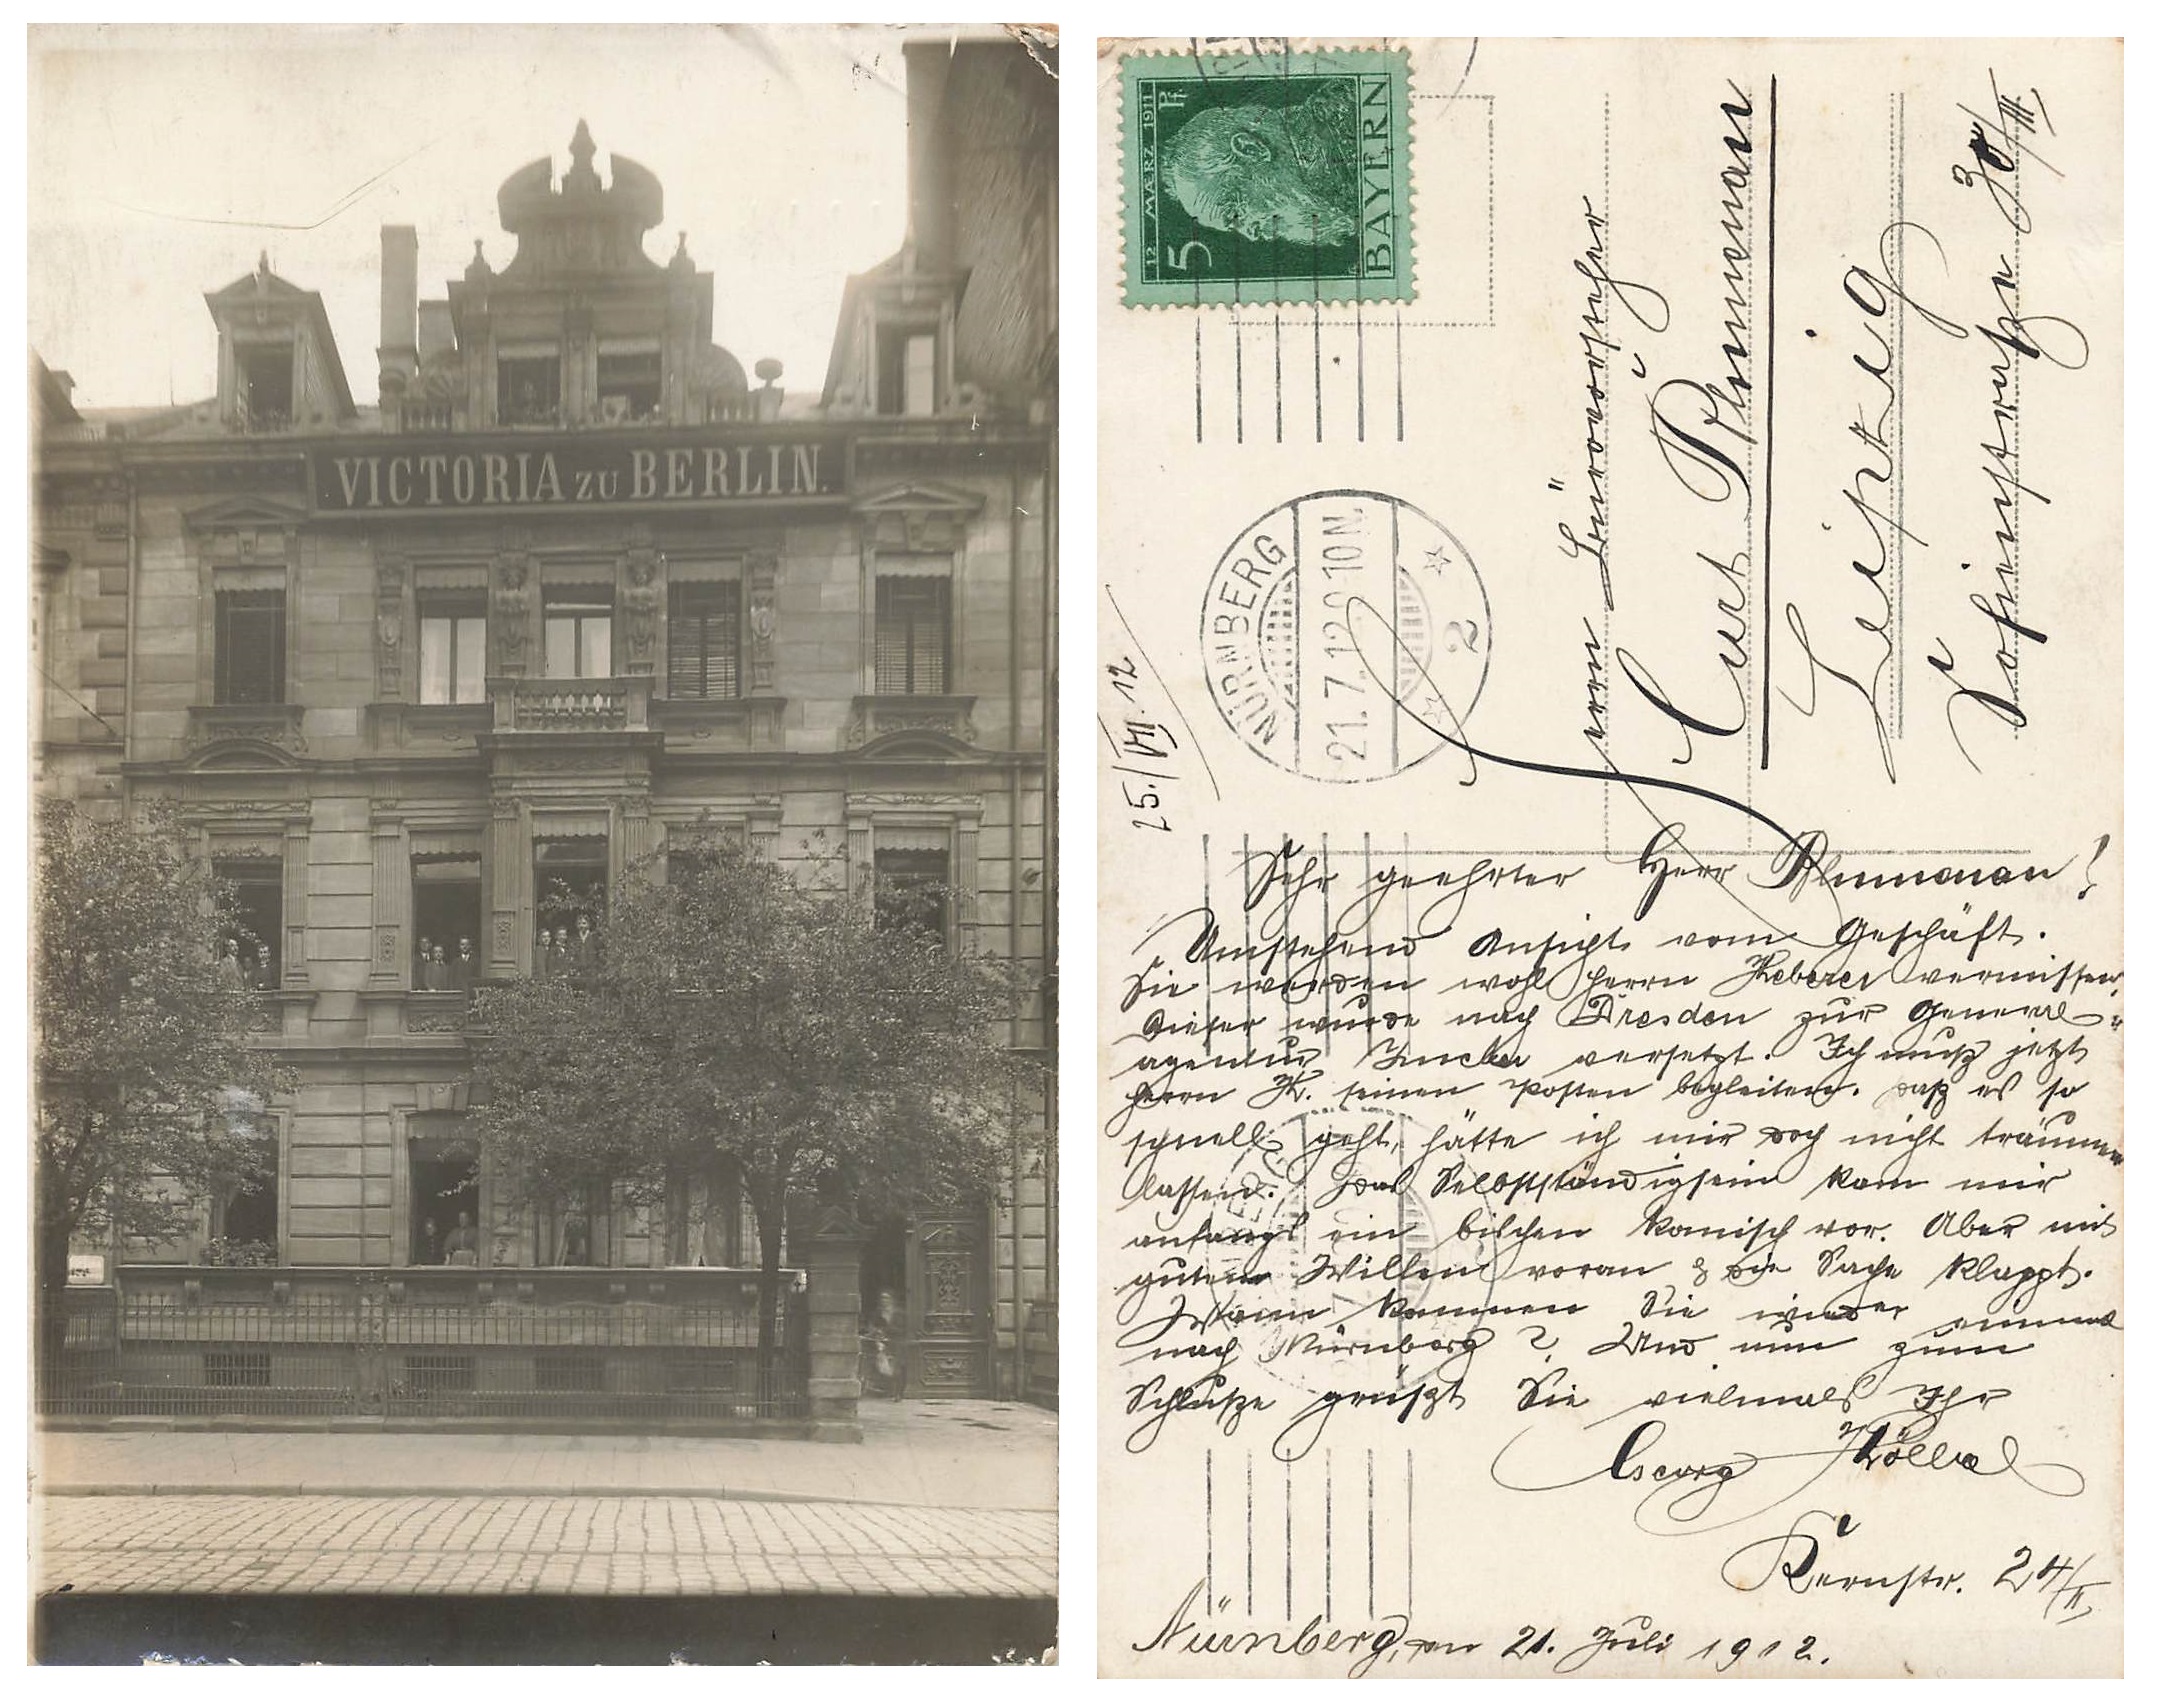 VICTORIA ZU BERLIN.
12 MÆRZ 1911
5 Pf.
BAYERN
NÜRNBERG
21.7.12.9-10N.
2
25./VII.12
Herrn Bürovorsteher
Curt Blumenau
Leipzig
Sofienstraße 30/III
Sehr geehrter Herr Blumenau!
Umstehend Ansicht vom Geschäft.
Sie werden wohl Herrn Heberer vermissen,
dieser wurde nach Dresden zur General-
agentur versetzt. Ich muß jetzt
Herrn H. seinen Posten begleiten. Daß es so
schnell geht, hätte ich mir doch nicht träumen
lassen. Das Selbstständigsein kam mir
anfangs ein bißchen komisch vor. Aber mit
gutem Willen voran & die Sache klappt.
Wann kommen Sie wieder einmal
nach Nürnberg? Und nun zum
Schluße grüßt Sie vielmals Ihr
Georg
Kernstr. 24/II
Nürnberg, den 21. Juli 1912.